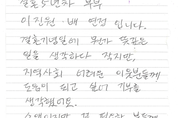 결혼 5년차 부부
이진원·배 연정 입니다.
결혼기념일에 뭔가 뜻깊은
일을 생각하다 작지만,
지역사회 어려운 이웃분들께
도움이 되고 싶어 기부를
생각했어요.